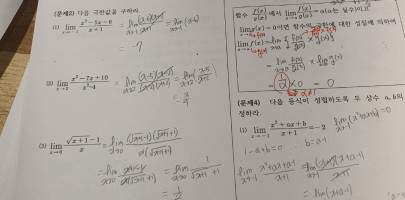 (문제2) 다음 극한값을 구하라.
(1) lim x→-1 (x²-5x-6)/(x+1) = lim x→-1 = lim x→-1 (x-6)
= -7
(2) lim (x²-7x+10)/(x²-4) = lim x→2 (x-5)(x-2)/(x+2)(x-2) = lim x→2
(3) lim x→0 (√(x+1)-1)/x = lim x→0 (√(x+1)-1)(√(x+1)+1)/x(√(x+1)+1)
= lim x→0 = lim x→0 1/(√(x+1)+1)
= 1/2
함수 f(x)/g(x) 에서 lim f(x)/g(x) = α
lim g(x) = 0 이면 함수의 극한에 대한 성질에 의하여
lim f(x) = lim { f(x)/g(x) × g(x) }
= lim f(x)/g(x) × lim g(x)
= α × 0 = 0
(문제4) 다음 등식이 성립하도록 두 상수 a, b의
정하라.
(1) lim x→-1 (x²+ax+b)/(x+1) = -2 lim x→-1 (x²+ax+b) = 0
1-a+b=0 b=a-1
lim x→-1 (x²+ax+a-1)/(x+1) = lim x→-1 (x+1)(x+a-1)/(x+1)
= lim (x+a-1)